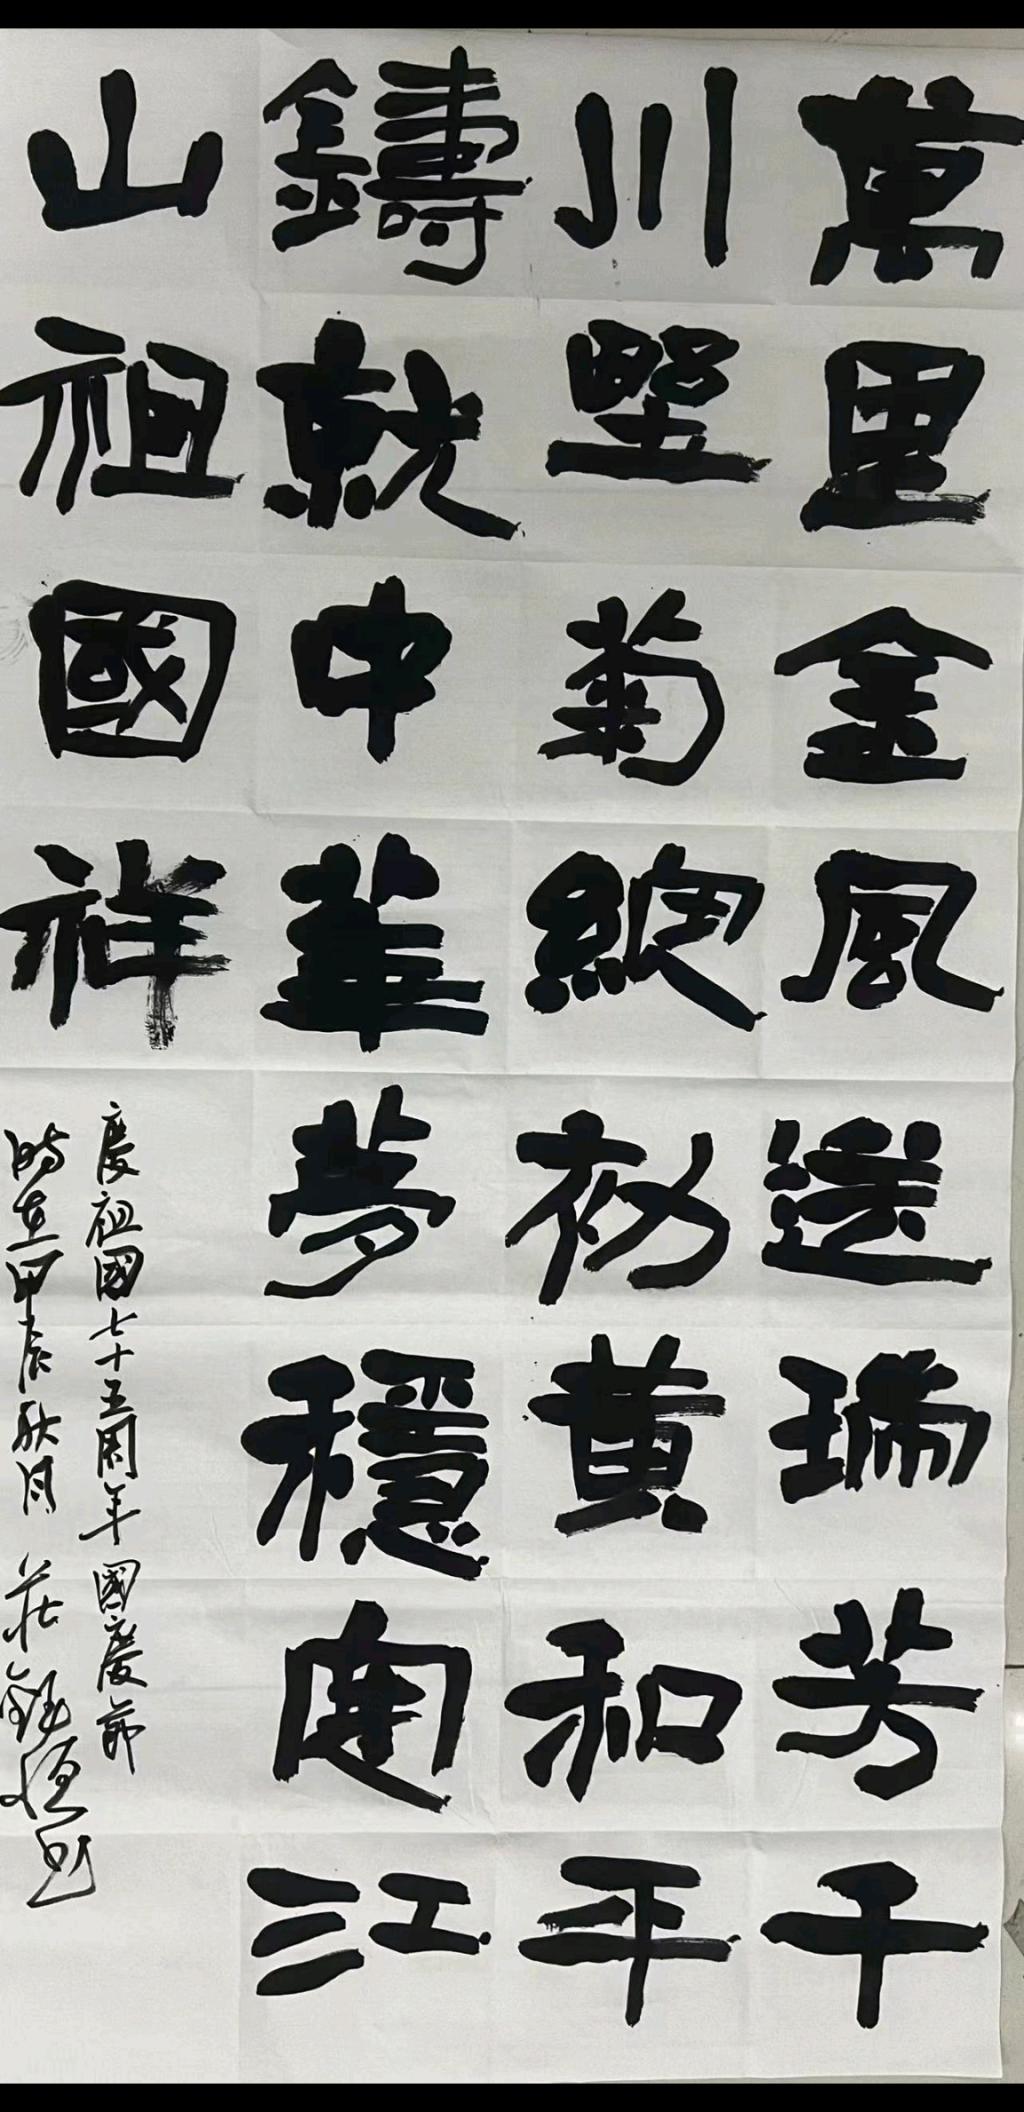 萬里金風送瑞芳千
川野菊總初黃和平
鑄就中華夢穩江
山祖國祥
慶祖國七十五周年國慶節
時在甲辰秋月 莊